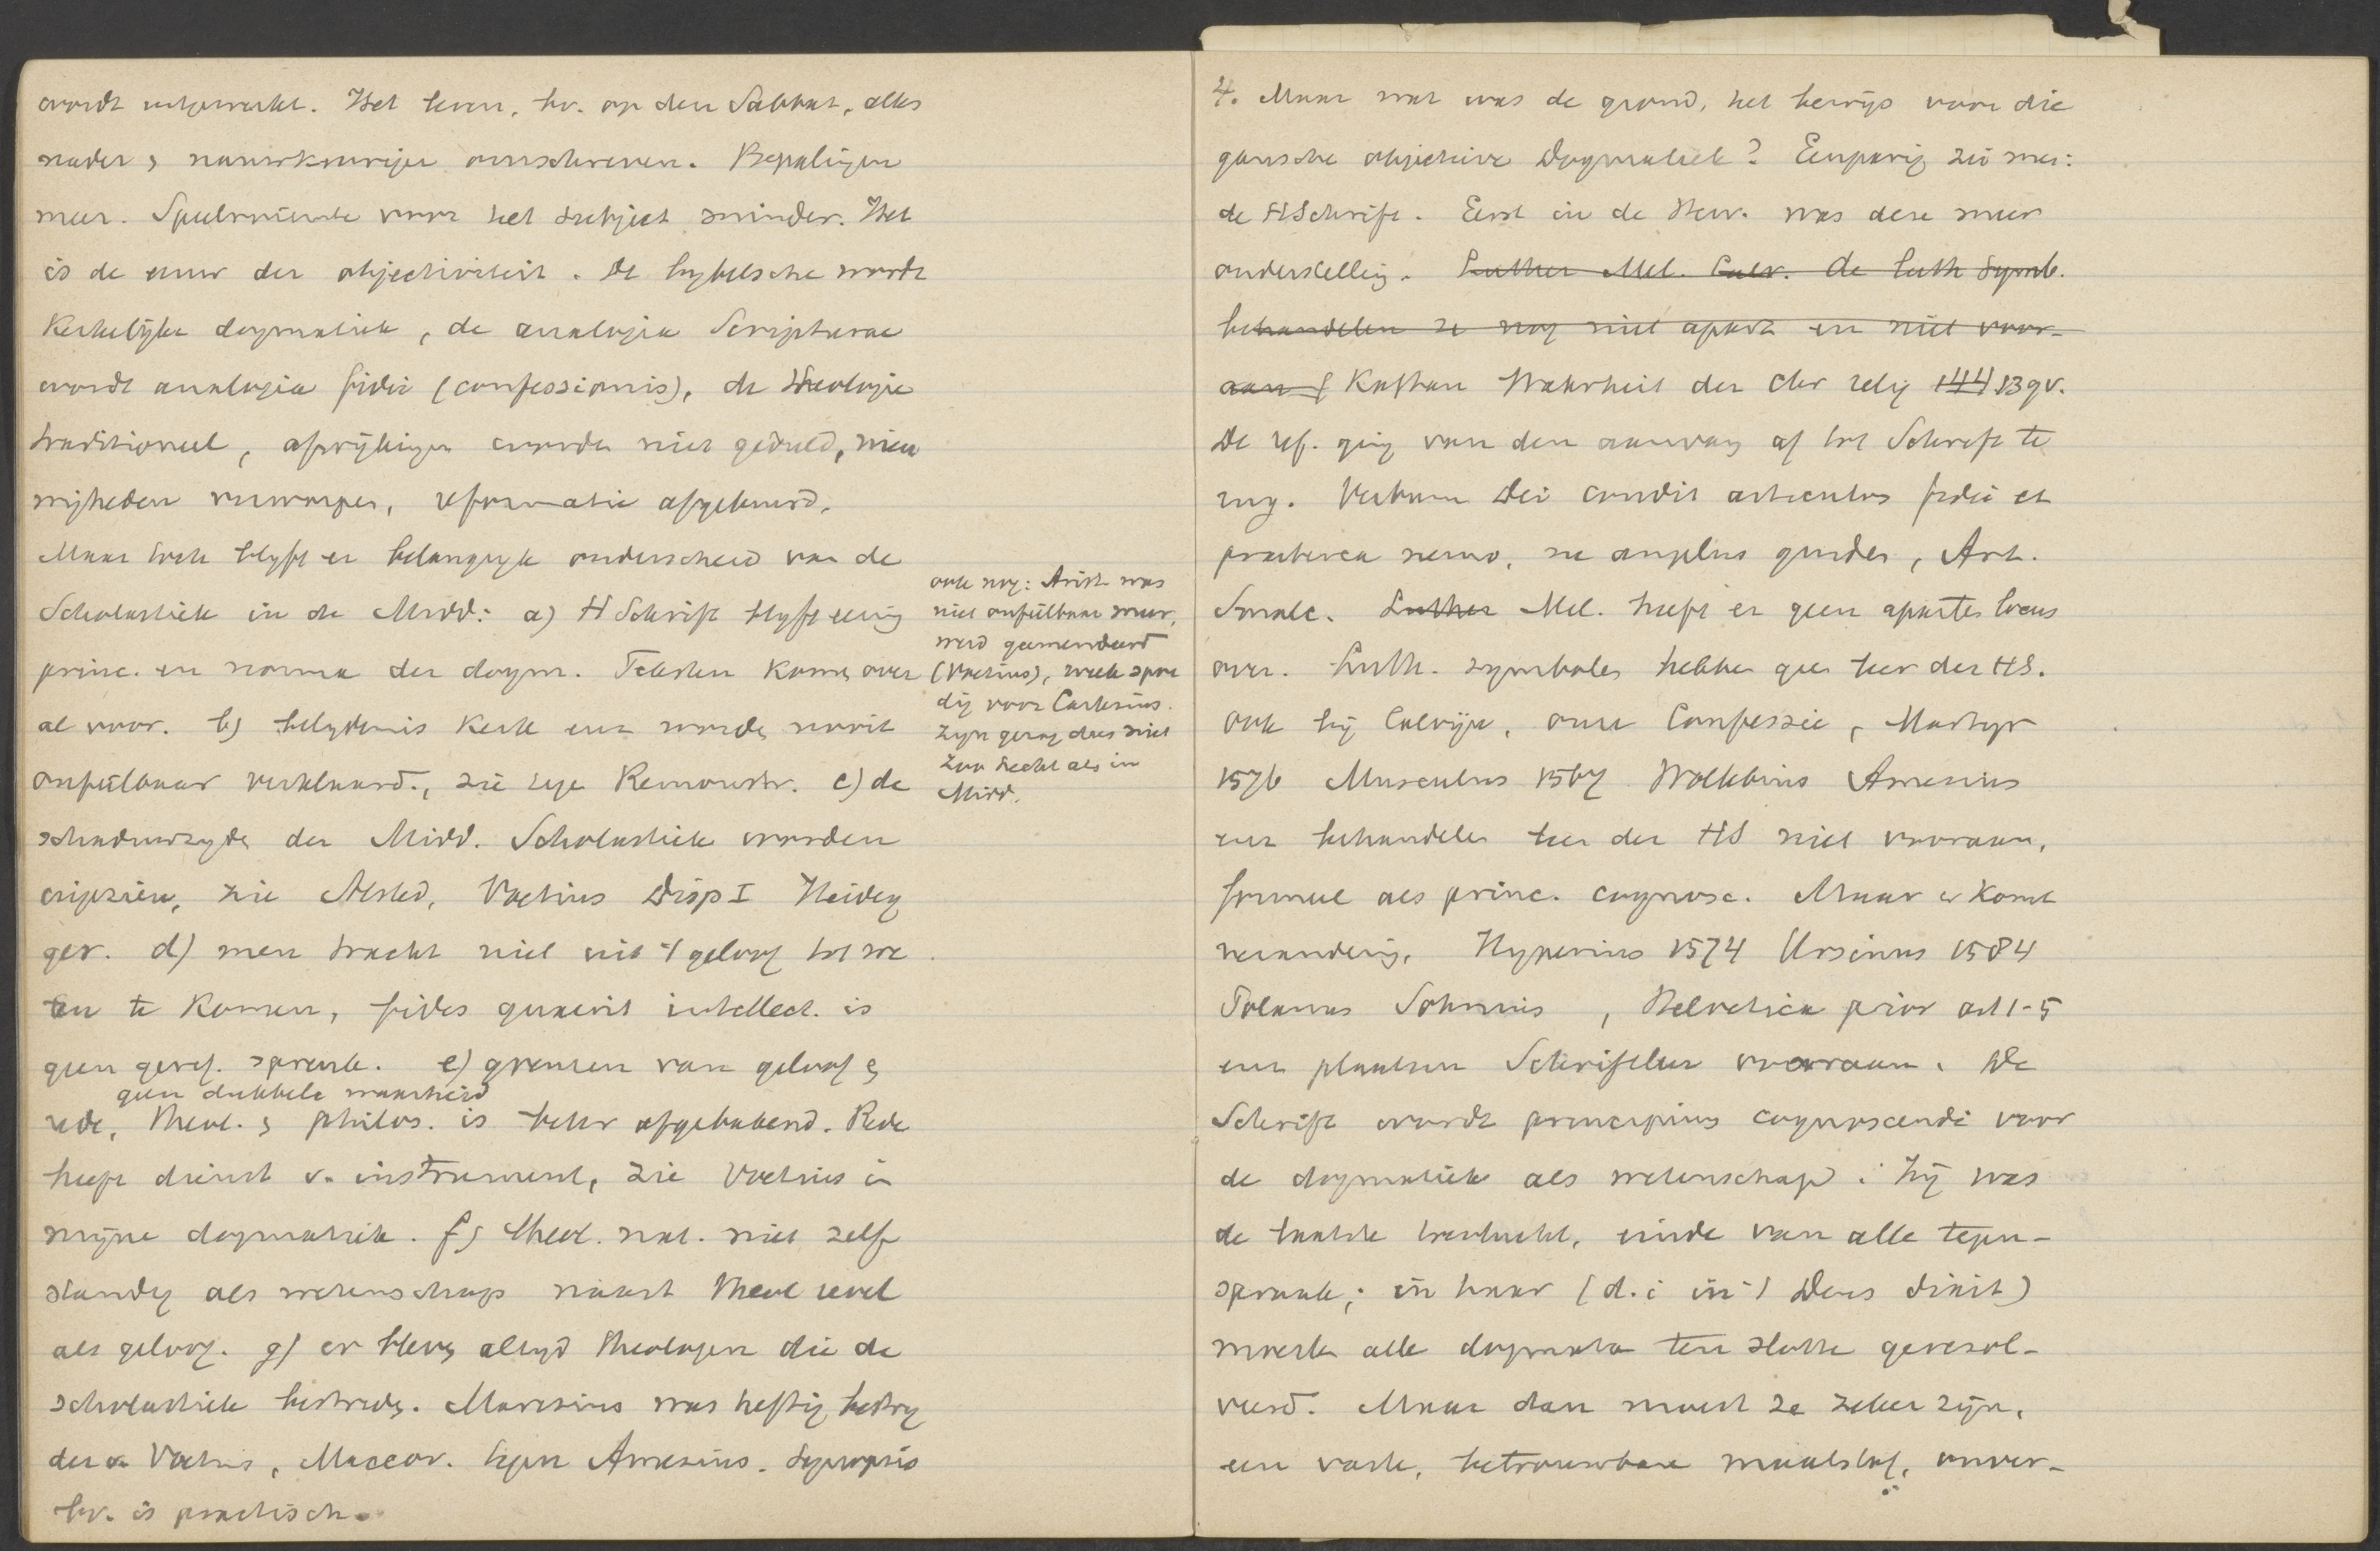 wordt uitgewerkt. Het leven, bv. op den Sabbat, alles
nader & nauwkeuriger omschreven. Bepalingen
meer. Speelruimte voor het subject minder. Het
is de eeuw der objectiviteit. De bybelsche wordt
Kerkelyke dogmatiek, de analogia Scripturae
wordt analogia fidei (confessionis), de theologie
traditioneel, afwijkingen worden niet geduld, nieu
wigheden verworpen, reformatie afgekeurd.
Maar toch blyft er belangryk onderscheid van de
Scholastiek in de Midd: a) H Schrift blyft eenig
princ. en norma der dogm. Teksten Komen over
al voor. b) belydenis Kerk enz worden nooit
onfeilbaar verklaard., zie tege Remonstr. c) de
schaduwzyde der Midd. Scholastiek worden
ingezien, zie Alsted, Voetius Disp I Heideg
ger. d) men tracht niet uit 't geloof tot we
ten te Komen, fides quaerit intellect. is
geen geref. spreuk. e) grenzen van geloof &
geen dubbele waarheid
rede, theol. & philos. is beter afgebakend. Rede
heeft dienst v. instrument, zie Voetius in
mijne dogmatiek. f) theol. nat. niet zelf
standig als wetenschap naast theol revel
als geloof. g) er bleven altyd theologen die de
scholastiek bestreden. Maresius was heftig bestry
der v. Voetius, Maccov. tegen Amesius. Synopsis
bv. is practisch.
ook nog: Arist was
niet onfeilbaar meer,
werd geemendeerd
(Voetius), week spoe
dig voor Cartesius.
Zyn gezag dus niet
zoo hecht als in
Midd.
4. Maar wat was de grond, het bewijs voor die
gansche objectieve Dogmatiek? Eenparig zei men:
de HSchrift. Eerst in de Herv. was deze meer
onderstelling. Luther Mel. Calv. de luth Symb.
behandelen ze nog niet apart en niet voor-
aan f Kaftan Wahrheit der chr relig 144 139v.
De ref. ging van den aanvang af tot Schrift te
rug. Verbum Dei condit articulos fidei et
praeterea nemo, ne angelus quidem, Art.
Smalc. Luther Mel. heeft er geen aparten locus
over. Luth. symbolen hebben geen leer der HS.
ook bij Calvijn, onze Confessie, Martyr
1576 Musculus 1567 Wollebius Amesius
enz behandelen leer der HS niet vooraan,
formeel als princ. cognosc. Maar er Komt
verandering. Hyperius 1574 Ursinus 1584
Polanus Sohnius, Helvetica prior art 1-5
enz plaatsen Schriftleer vooraan. De
Schrift wordt principium cognoscendi voor
de dogmatiek als wetenschap. Zij was
de laatste toevlucht, einde van alle tegen-
spraak; in haar (d.i in 't Deus dixit)
moesten alle dogmata ten slotte geresol-
veerd. Maar dan moest ze zeker zijn,
een vaste, betrouwbare maatstaf, onver-